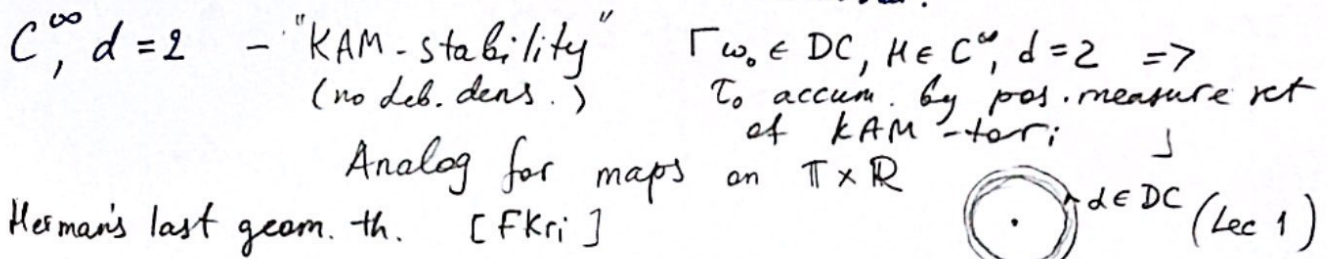 C^∞, d = 2 - "KAM-stability" ⌈ω₀ ∈ DC, H ∈ C^∞, d = 2 =>
(no Leb. dens.) T₀ accum. by pos. measure set
of KAM-tori ⌋
Analog for maps on 𝕋 × ℝ
Herman's last geom. th. [FKri] α ∈ DC (Lec 1)